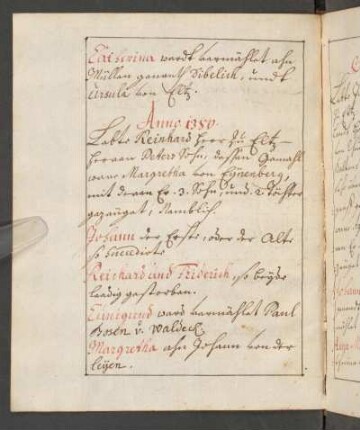 Catherina wardt vermählet ahn
Müllen genandt Sibelich, undt
Ursula von Eltz.
Anno 1380.
Lebte Reinhard Herr zu Eltz
Herren Peters Sohn, dessen Gemahl
ware Margretha von Eynenberg,
mit deren Er 3. Söhn, und 2 töchter
gezeüget, Namblich.
Johann der Erste, oder der Alte
so succedirte
Reichard und Friderich, so beyde
ledig gestorben.
Cunigund ward vermählet Paul
Bosen v. Waldeck
Margretha ahn Johann von der
Leyen.